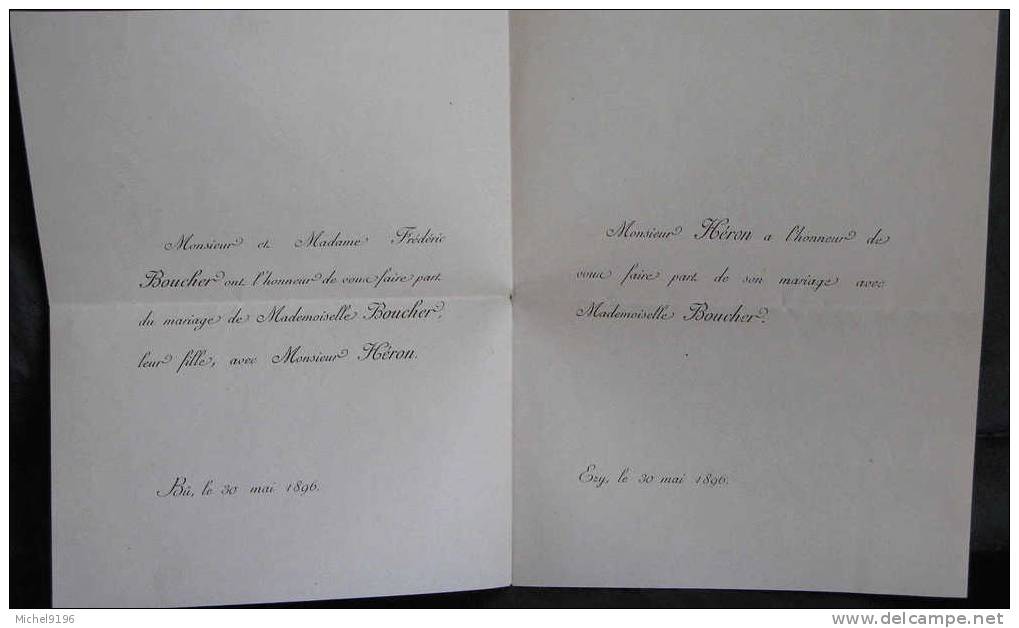 Monsieur et Madame Frédéric
Boucher ont l'honneur de vous faire part
du mariage de Mademoiselle Boucher,
leur fille, avec Monsieur Héron.
Bû, le 30 mai 1896.
Monsieur Héron a l'honneur de
vous faire part de son mariage avec
Mademoiselle Boucher.
Ezy, le 30 mai 1896.
Michel9196
www.delcampe.net